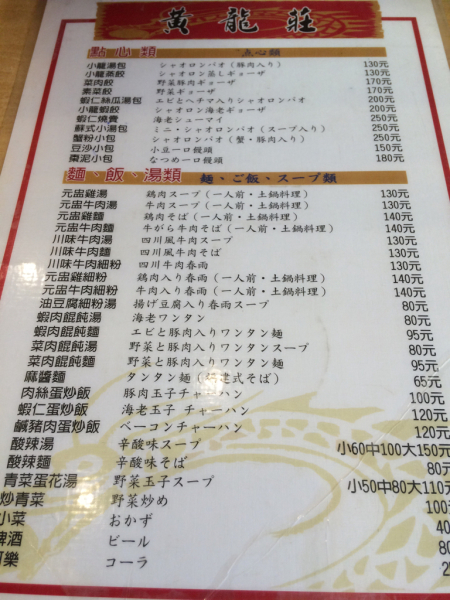 黃龍莊
點心類 点心類
小籠湯包 シャオロンパオ（豚肉入り） 130元
小籠蒸餃 シャオロン蒸しギョーザ 130元
菜肉餃 野菜豚肉ギョーザ 170元
素菜餃 野菜ギョーザ 170元
蝦仁絲瓜湯包 エビとヘチマ入りシャオロンパオ 200元
小籠蝦餃 シャオロン海老ギョーザ 200元
蝦仁燒賣 海老シューマイ 250元
蘇式小湯包 ミニ・シャオロンパオ（スープ入り） 250元
蟹粉小包 シャオロンパオ（蟹・豚肉入り） 250元
豆沙小包 小豆一口饅頭 150元
棗泥小包 なつめ一口饅頭 180元
麵、飯、湯類 麺、ご飯、スープ類
元盅雞湯 鶏肉スープ（一人前・土鍋料理） 130元
元盅牛肉湯 牛肉スープ（一人前・土鍋料理） 130元
元盅雞麵 鶏肉そば（一人前・土鍋料理） 140元
元盅牛肉麵 牛がら牛肉そば（一人前・土鍋料理） 140元
川味牛肉湯 四川風牛肉スープ 130元
川味牛肉麵 四川風牛肉そば 130元
川味牛肉細粉 四川牛肉春雨 130元
元盅雞細粉 鶏肉入り春雨（一人前・土鍋料理） 140元
元盅牛肉細粉 牛肉入り春雨（一人前・土鍋料理） 140元
油豆腐細粉湯 揚げ豆腐入り春雨スープ 80元
蝦肉餛飩湯 海老ワンタン 80元
蝦肉餛飩麵 エビと豚肉入りワンタン麺 95元
菜肉餛飩湯 野菜と豚肉入りワンタンスープ 80元
菜肉餛飩麵 野菜と豚肉入りワンタン麺 95元
麻醬麵 タンタン麺 式そば） 65元
肉絲蛋炒飯 豚肉玉子チャーハン 100元
蝦仁蛋炒飯 海老玉子 チャーハン 120元
鹹豬肉蛋炒飯 ベーコンチャーハン 120元
酸辣湯 辛酸味スープ 小60中100大150元
酸辣麵 辛酸味そば 80元
青菜蛋花湯 野菜玉子スープ 小50中80大110元
炒青菜 野菜炒め 100
小菜 おかず 40
啤酒 ビール 80
可樂 コーラ 2